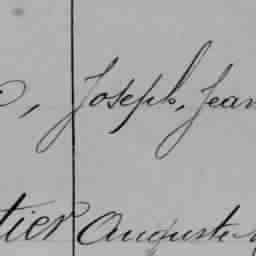 , Joseph, Jean
tier Auguste